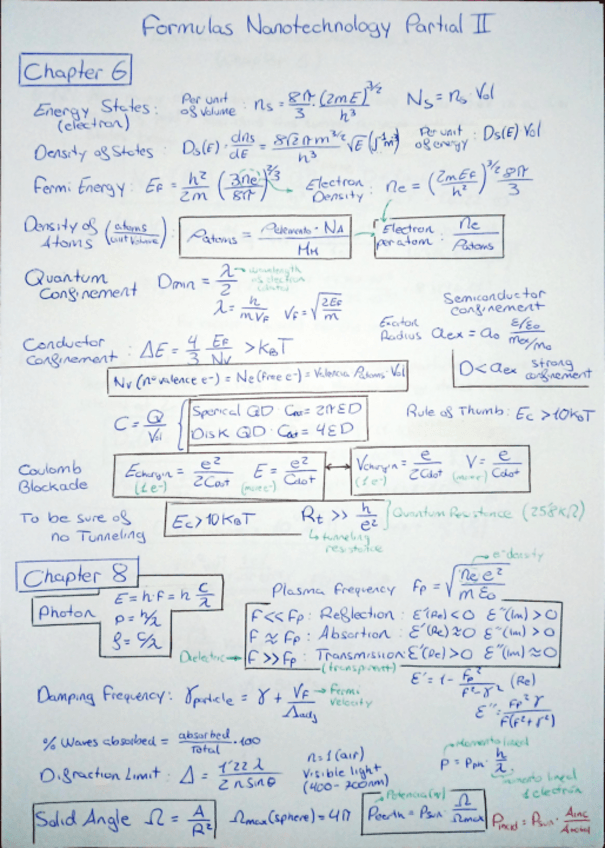 Formulas Nanotechnology Partial II
Chapter 6
Energy States: (electron) Per unit of volume: ns = 8π/3 · (2mE)^3/2 / h³ Ns = ns · Vol
Density of States: Ds(E) · dns/dE = 8√2πm^3/2 / h³ √E (J⁻¹m⁻³) Per unit of energy: Ds(E) Vol
Fermi Energy: EF = h²/2m (3ne/8π)^2/3 → Electron Density: ne = (2mEF/h²)^3/2 8π/3
Density of Atoms (atoms/unit volume): ρatoms = ρelemento · NA / MM → Electron per atom: ne/ρatoms
Quantum Confinement Dmin = λ/2 → wavelength of electron
λ = h/mVF VF = √(2EF/m)
Semiconductor confinement
Exciton Radius aex = a0 ε/ε0 / mex/m0
Conductor Confinement: ΔE = 4/3 EF/Nv > KBT
D < aex strong confinement
Nv (nº valence e⁻) = Ne (free e⁻) = Valencia · ρatoms · Vol
C = Q/Vol { Sperical QD Cdot = 2πεD
Disk QD: Cdot = 4εD
Rule of Thumb: Ec > 10KBT
Coulomb Blockade Echargin = e²/2Cdot (1e⁻) E = e²/Cdot (more e⁻) ↔ Vchargin = e/2Cdot (1e⁻) V = e/Cdot (more e⁻)
To be sure of no Tunneling Ec > 10KBT Rt >> h/e² } Quantum Resistance (25'8KΩ)
↳ tunneling resistance
Chapter 8
Photon E = h·f = h c/λ
p = h/λ
f = c/λ
Plasma Frequency Fp = √(ne e²/mε0) → e⁻ density
F << Fp: Reflection: ε'(Re) < 0 ε''(Im) > 0
F ≈ Fp: Absortion: ε'(Re) ≈ 0 ε''(Im) > 0
Dielectric → F >> Fp: Transmision: ε'(Re) > 0 ε''(Im) ≈ 0
(transparent)
ε' = 1 - Fp²/F²-γ² (Re)
ε'' = Fp² γ / F(F²+γ²)
Damping Frequency: γparticle = γ + VF/Δadj → Fermi velocity
% Waves absorbed = absorbed/Total · 100
Difraction Limit: Δ = 1'22 λ / 2 n sinθ
n = 1 (air)
Visible light (400-700nm)
momento lineal
P = Pph · h/λ
momento lineal 1 electron
Solid Angle Ω = A/R² Ωmax(sphere) = 4π
Potencia(W)
Pearth = Psun · Ω/Ωmax
Pincid = Psun · Ainc/Atotal